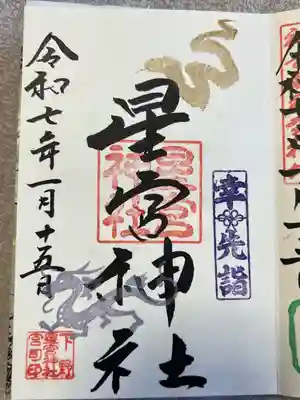 幸先詣
星宮神社
星宮
神社
令和七年一月十五日
下野
星宮神社
宮司印